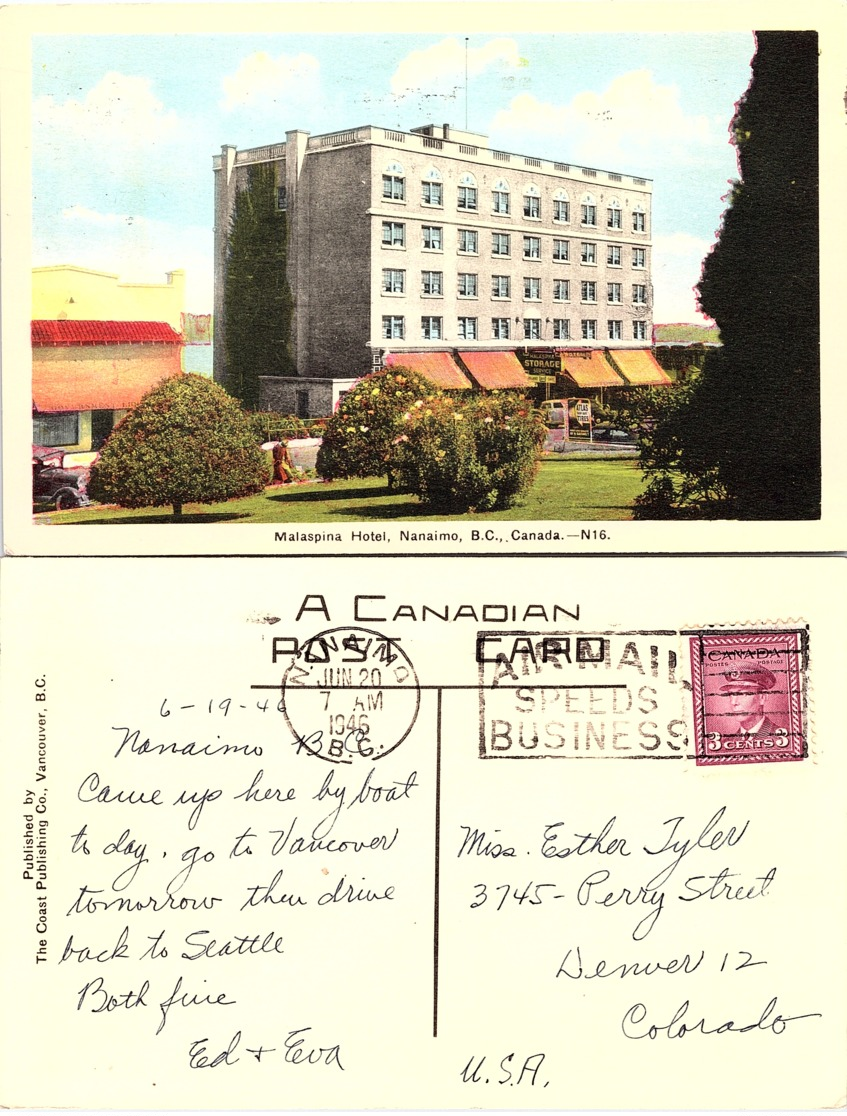 MALASPINA
STORAGE
SERVICE
ATLAS
Malaspina Hotel, Nanaimo, B.C., Canada.—N16.
A CANADIAN
POST CARD
NANAIMO
JUN 20
7 AM
1946
B.C.
AIR MAIL
SPEEDS
BUSINESS
CANADA
POSTES POSTAGE
3 CENTS 3
Published by
The Coast Publishing Co., Vancouver, B.C.
6-19-46
Nanaimo B.C.
Came up here by boat
to day. go to Vancover
tomorrow then drive
back to Seattle
Both fine
Ed + Eva
Miss. Esther Tyler
3745- Perry Street
Denver 12
Colorado
U.S.A.